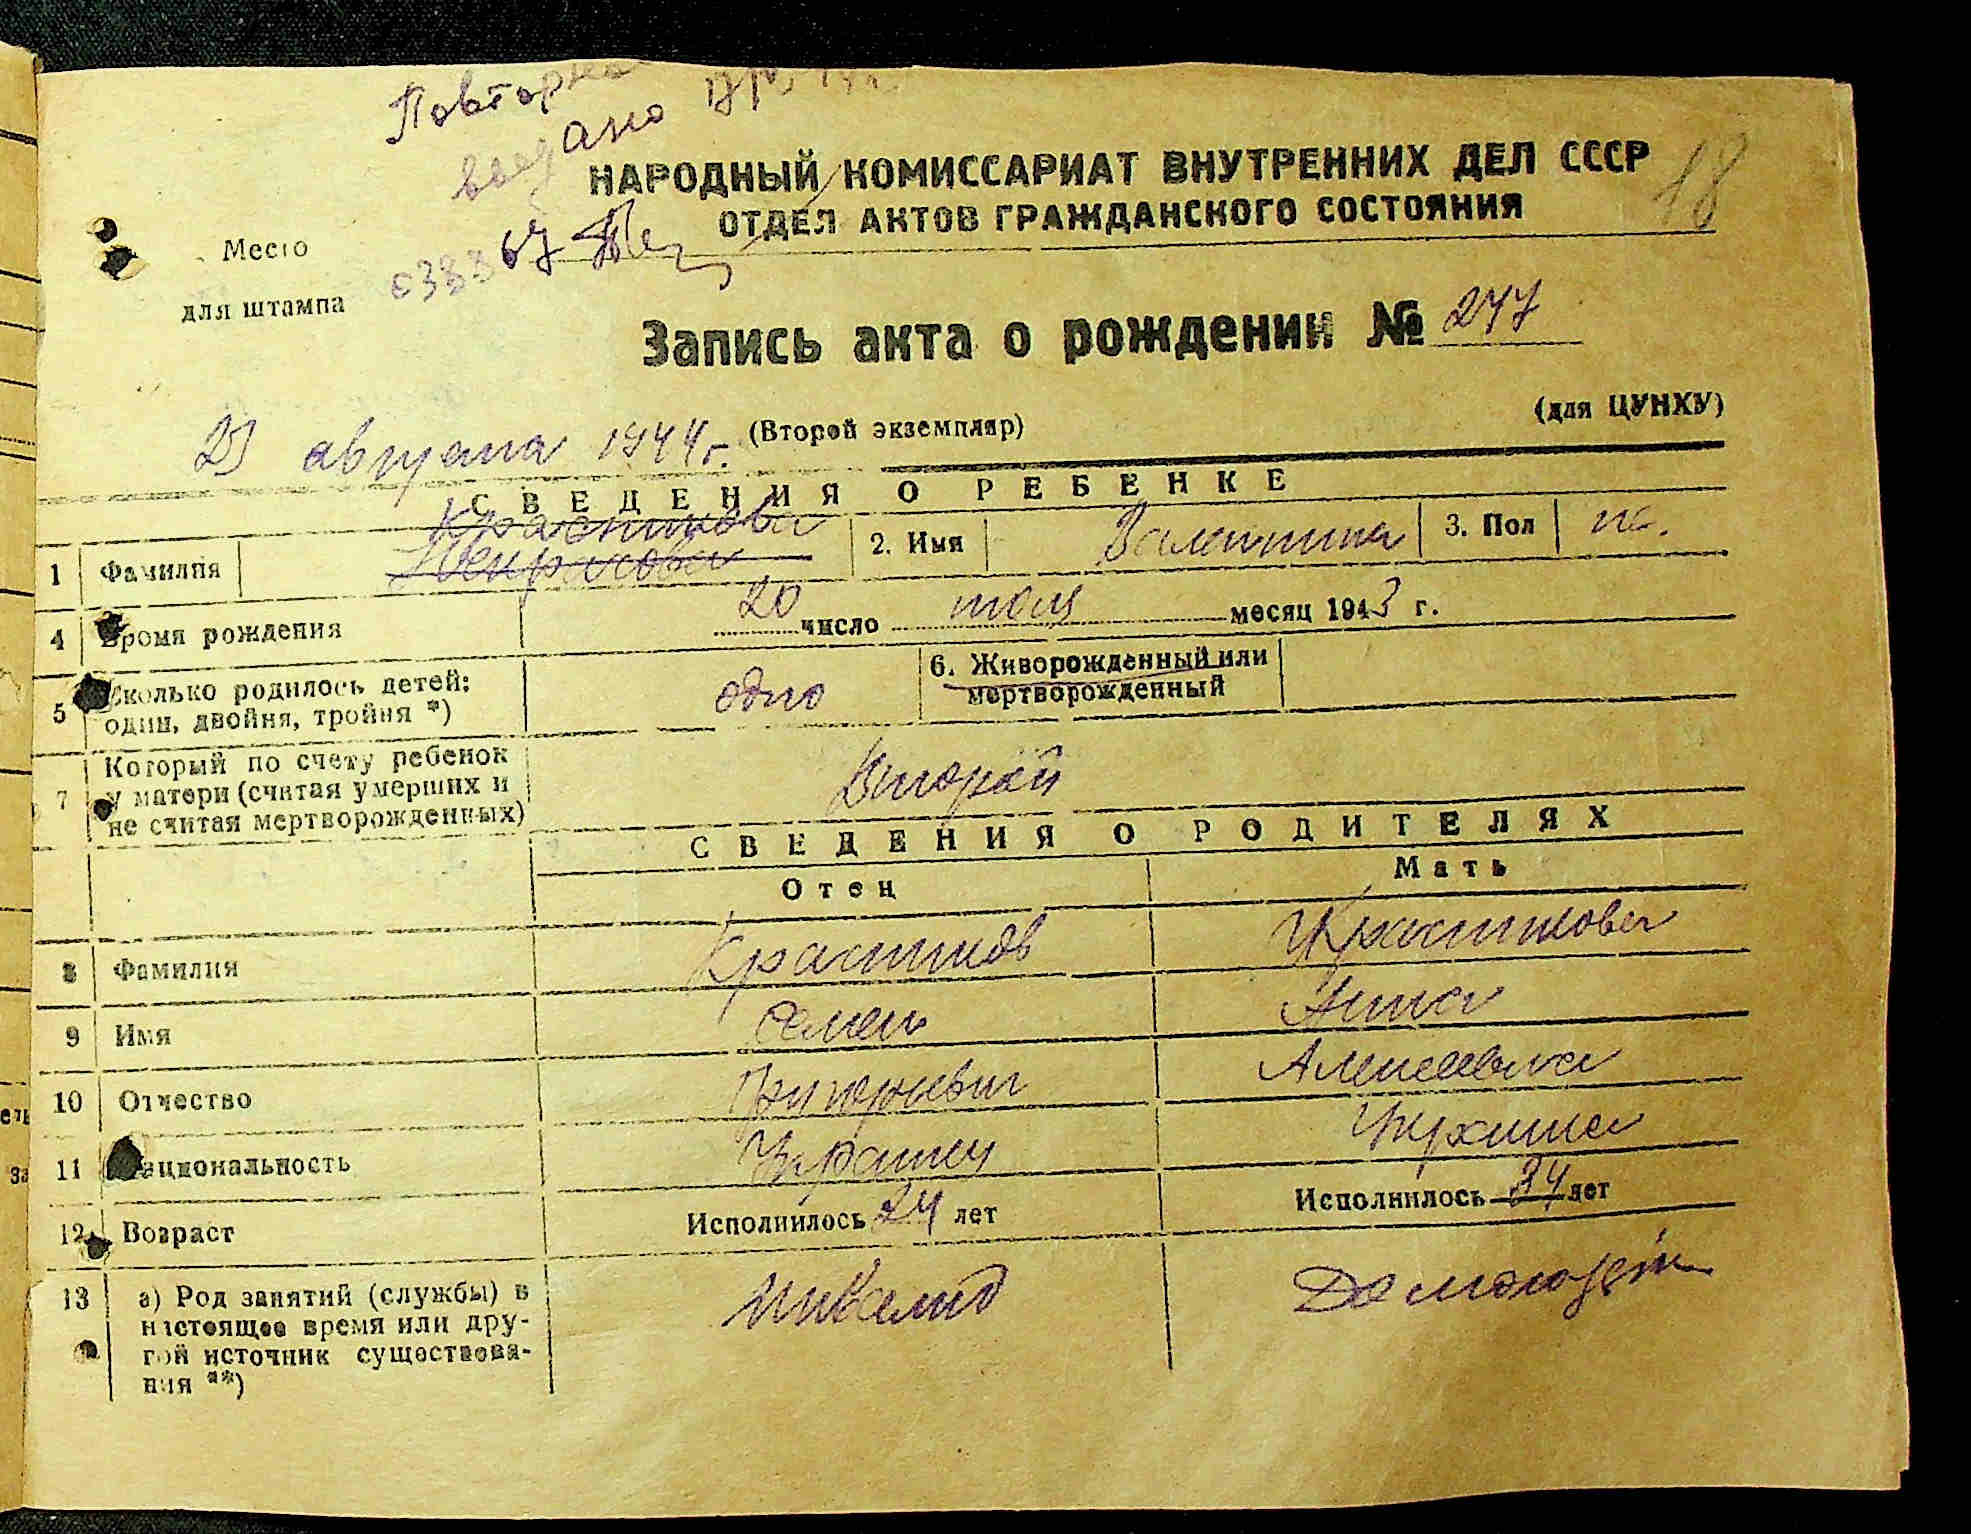 Повторно
выдано
18
НАРОДНЫЙ КОМИССАРИАТ ВНУТРЕННИХ ДЕЛ СССР
ОТДЕЛ АКТОВ ГРАЖДАНСКОГО СОСТОЯНИЯ
Место
для штампа
Запись акта о рождении № 247
(для ЦУНХУ)
августа 1944 г. (Второй экземпляр)
СВЕДЕНИЯ О РЕБЕНКЕ
1 Фамилия 2. Имя Валентина 3. Пол
4 Время рождения 20 число июля месяц 1943 г.
5 Сколько родилось детей: один, двойня, тройня *) одно 6. Живорожденный или мертворожденный
7 Который по счету ребенок у матери (считая умерших и не считая мертворожденных) Второй
СВЕДЕНИЯ О РОДИТЕЛЯХ
Отец Мать
8 Фамилия Красников Красникова
9 Имя Семен Анна
10 Отчество Григорьевич Алексеевна
11 Национальность Украинец
12 Возраст Исполнилось 24 лет Исполнилось 34 лет
13 а) Род занятий (службы) в настоящее время или дру-
гой источник существова-
ния **) инвалид Домохоз